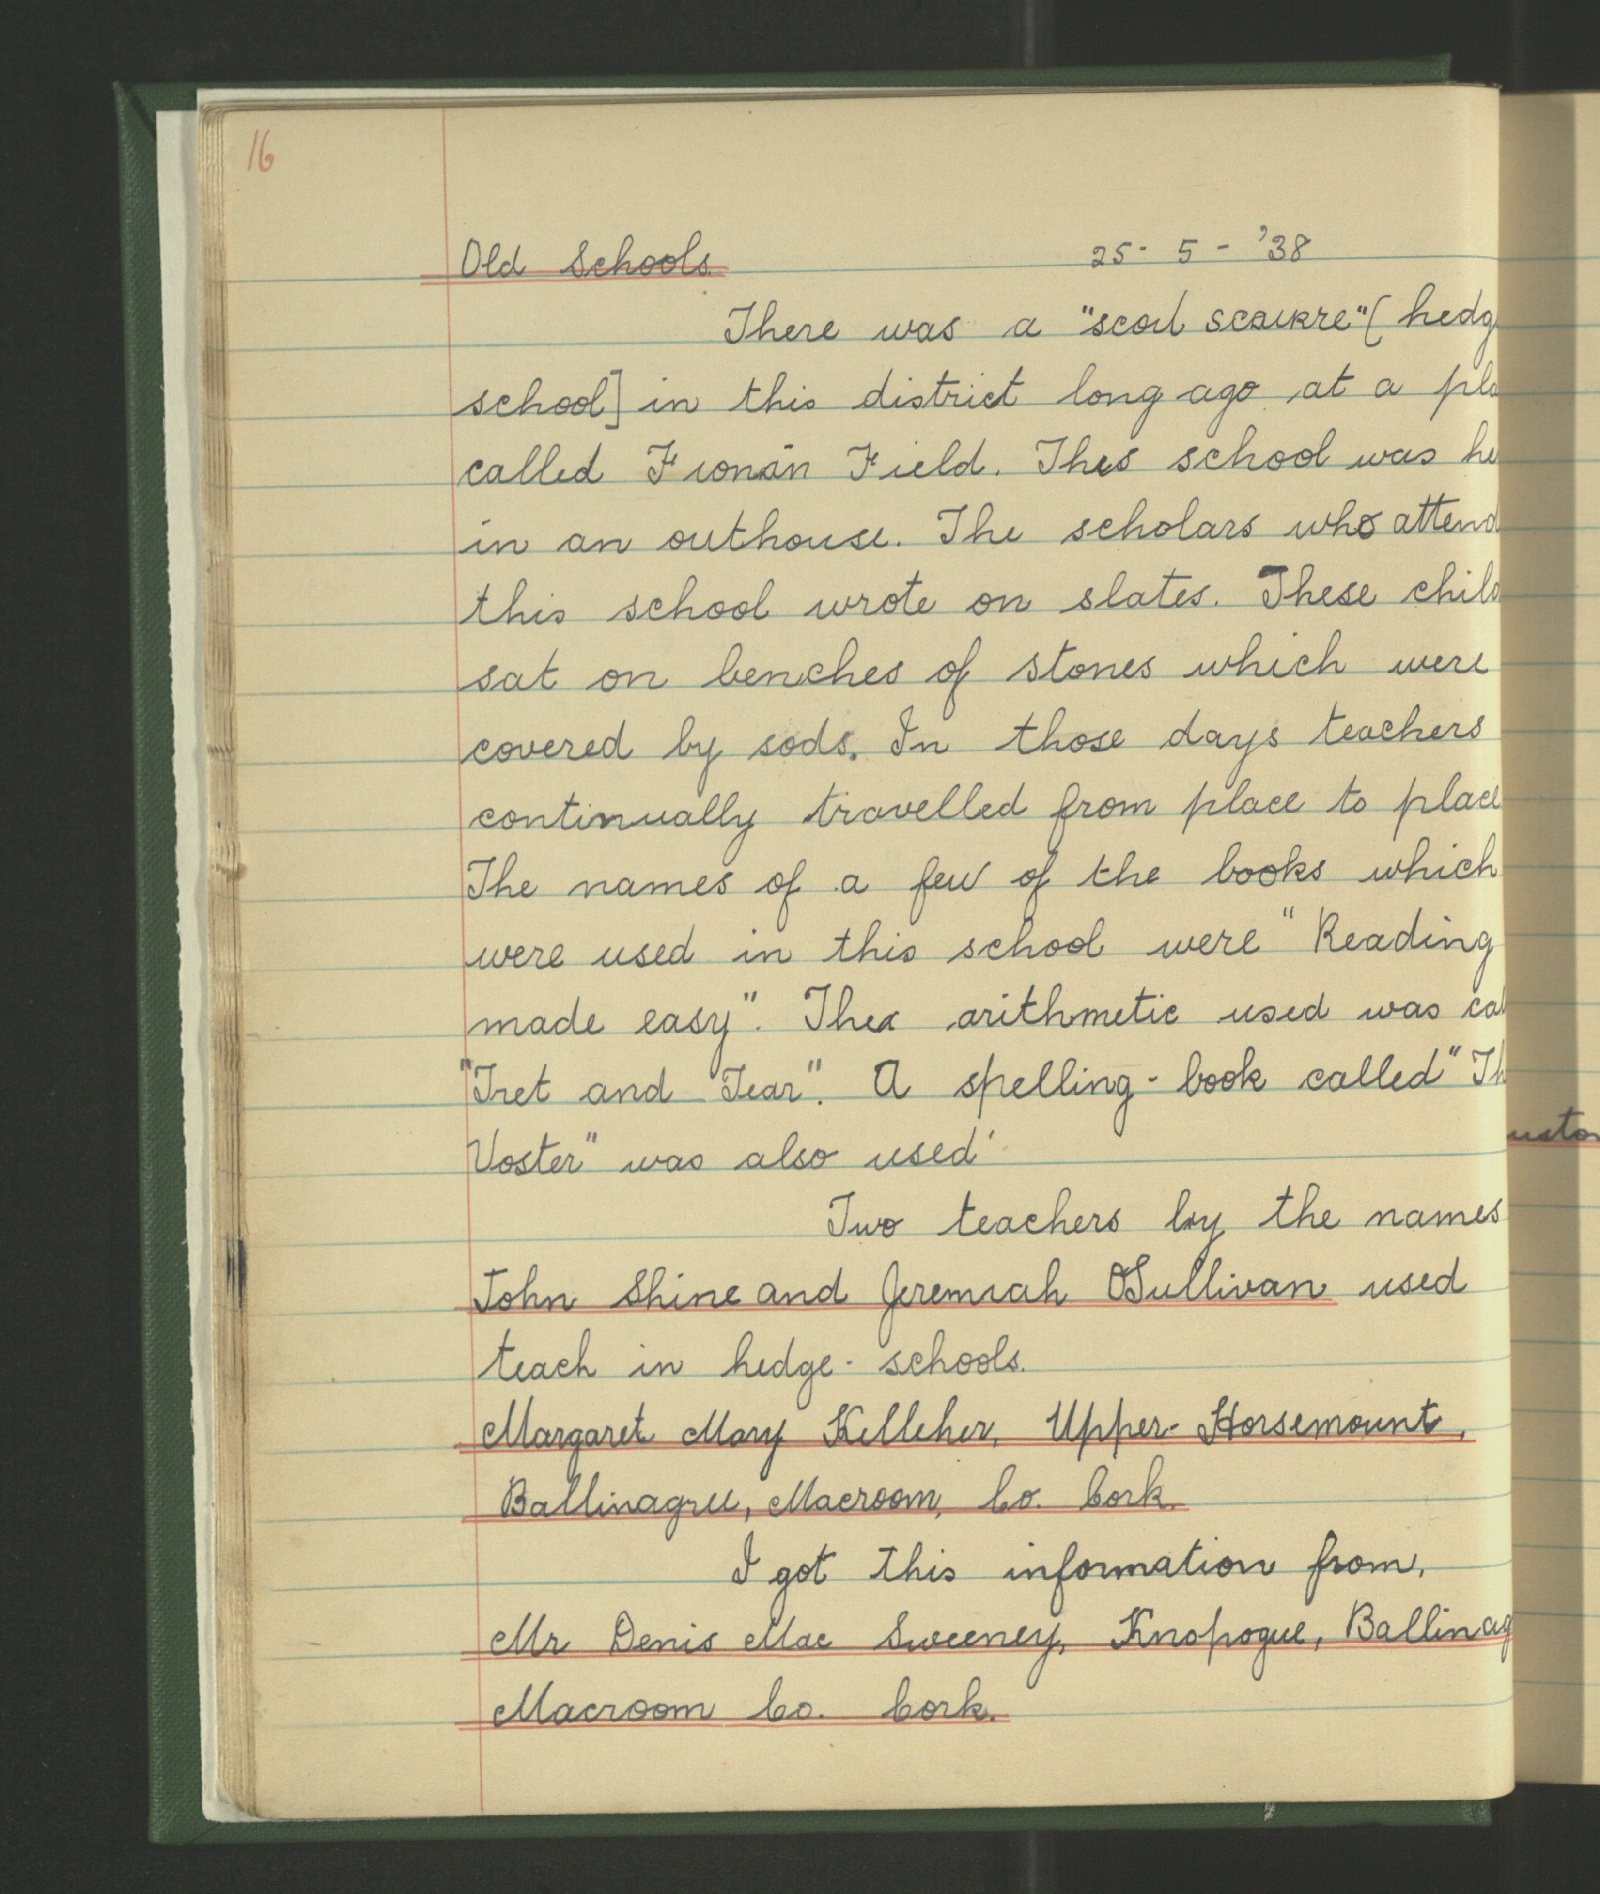 16
Old Schools 25 - 5 - '38
There was a "scoil scairte" ( hedg
school] in this district long ago at a pla
called Fionán Field. This school was he
in an outhouse. The scholars who attend
this school wrote on slates. These child
sat on benches of stones which were
covered by sods. In those days teachers
continually travelled from place to place
The names of a few of the books which
were used in this school were "Reading
made easy". The arithmetic used was cal
"Tret and Tear". A spelling-book called "Th
Voster" was also used'
Two teachers by the names
John Shine and Jeremiah O'Sullivan used
teach in hedge-schools.
Margaret Mary Kelleher, Upper-Horsemount,
Ballinagree, Macroom, Co. Cork.
I got this information from,
Mr Denis Mac Sweeney, Knopogue, Ballinag
Macroom Co. Cork.